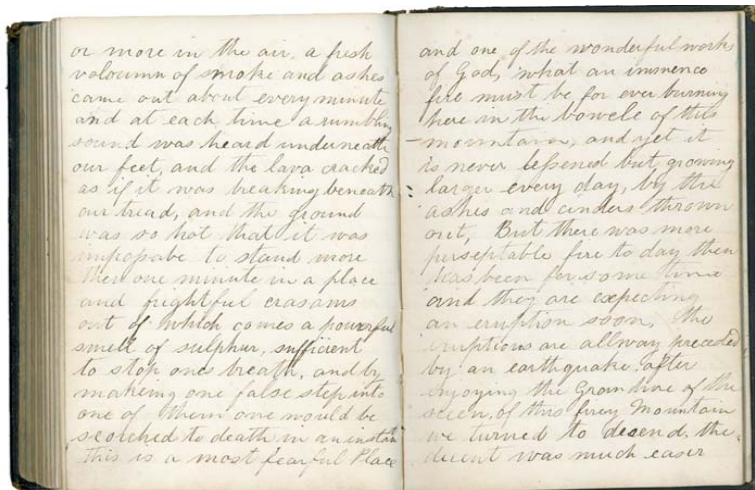 or more in the air, a fresh
voloumn of smoke and ashes
came out about every minute
and at each time a rumbling
sound was heard underneath
our feet, and the lava cracked
as if it was breaking beneath
our tread, and the ground
was so hot that it was
impopabe to stand more
then one minute in a place
and frightful crasams
out of which comes a powerful
smell of sulphur, sufficient
to stop ones breath, and by
makeing one false step into
one of them one would be
scorched to death in an instant
this is a most fearful Place
and one of the wonderful works
of God, what an immence
fire must be for ever burning
here in the bowels of this
mountain, and yet it
is never lessened but growing
larger every day, by the
ashes and cinders thrown
out, But there was more
perseptable fire to day then
has been for some time
and they are expecting
an eruption soon, the
iruptions are allway preceded
by an earthquake, after
enjoying the Grandure of the
sceen, of this firey Mountain
we turned to decend. the
decent was much easer